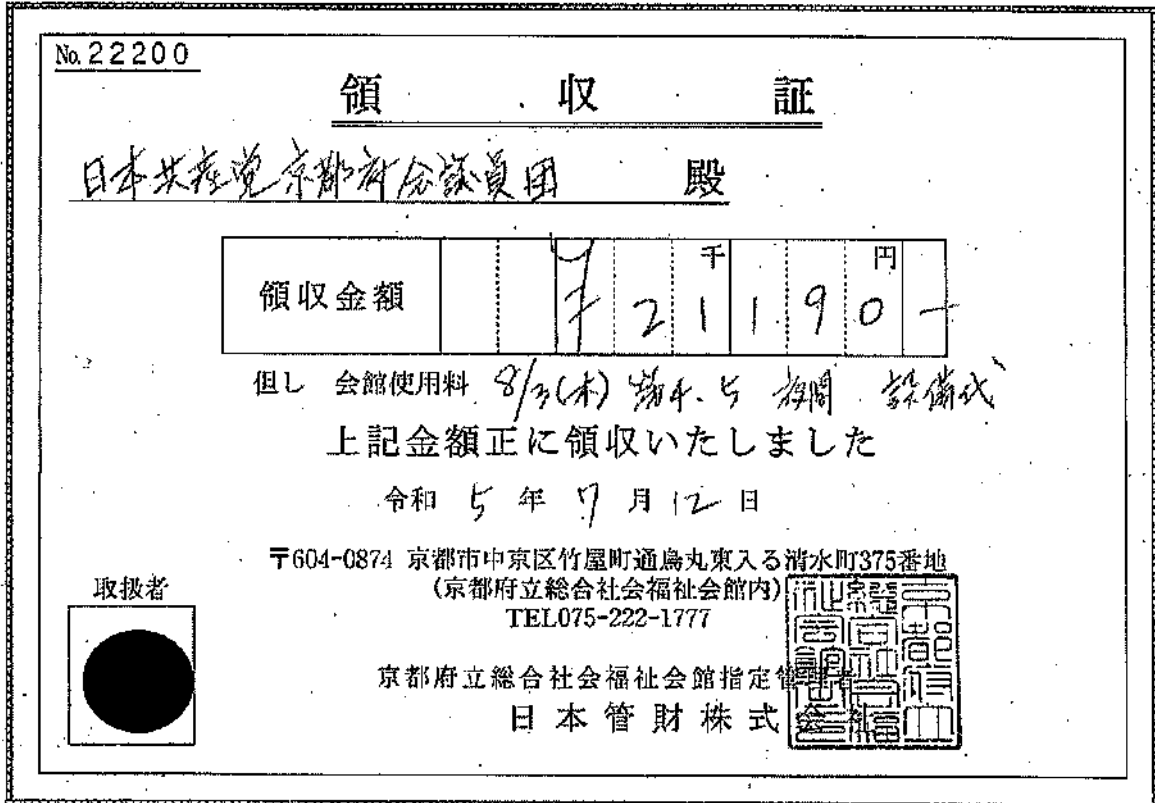 No.22200
領収証
日本共産党京都府会議員団 殿
領収金額 ¥21190-
千 円
但し 会館使用料 8/3(木) 第4.5 夜間 設備代
上記金額正に領収いたしました
令和5年7月12日
〒604-0874 京都市中京区竹屋町通烏丸東入る清水町375番地
(京都府立総合社会福祉会館内)
TEL075-222-1777
取扱者
京都府立総合社会福祉会館指定管理者
日本管財株式会社